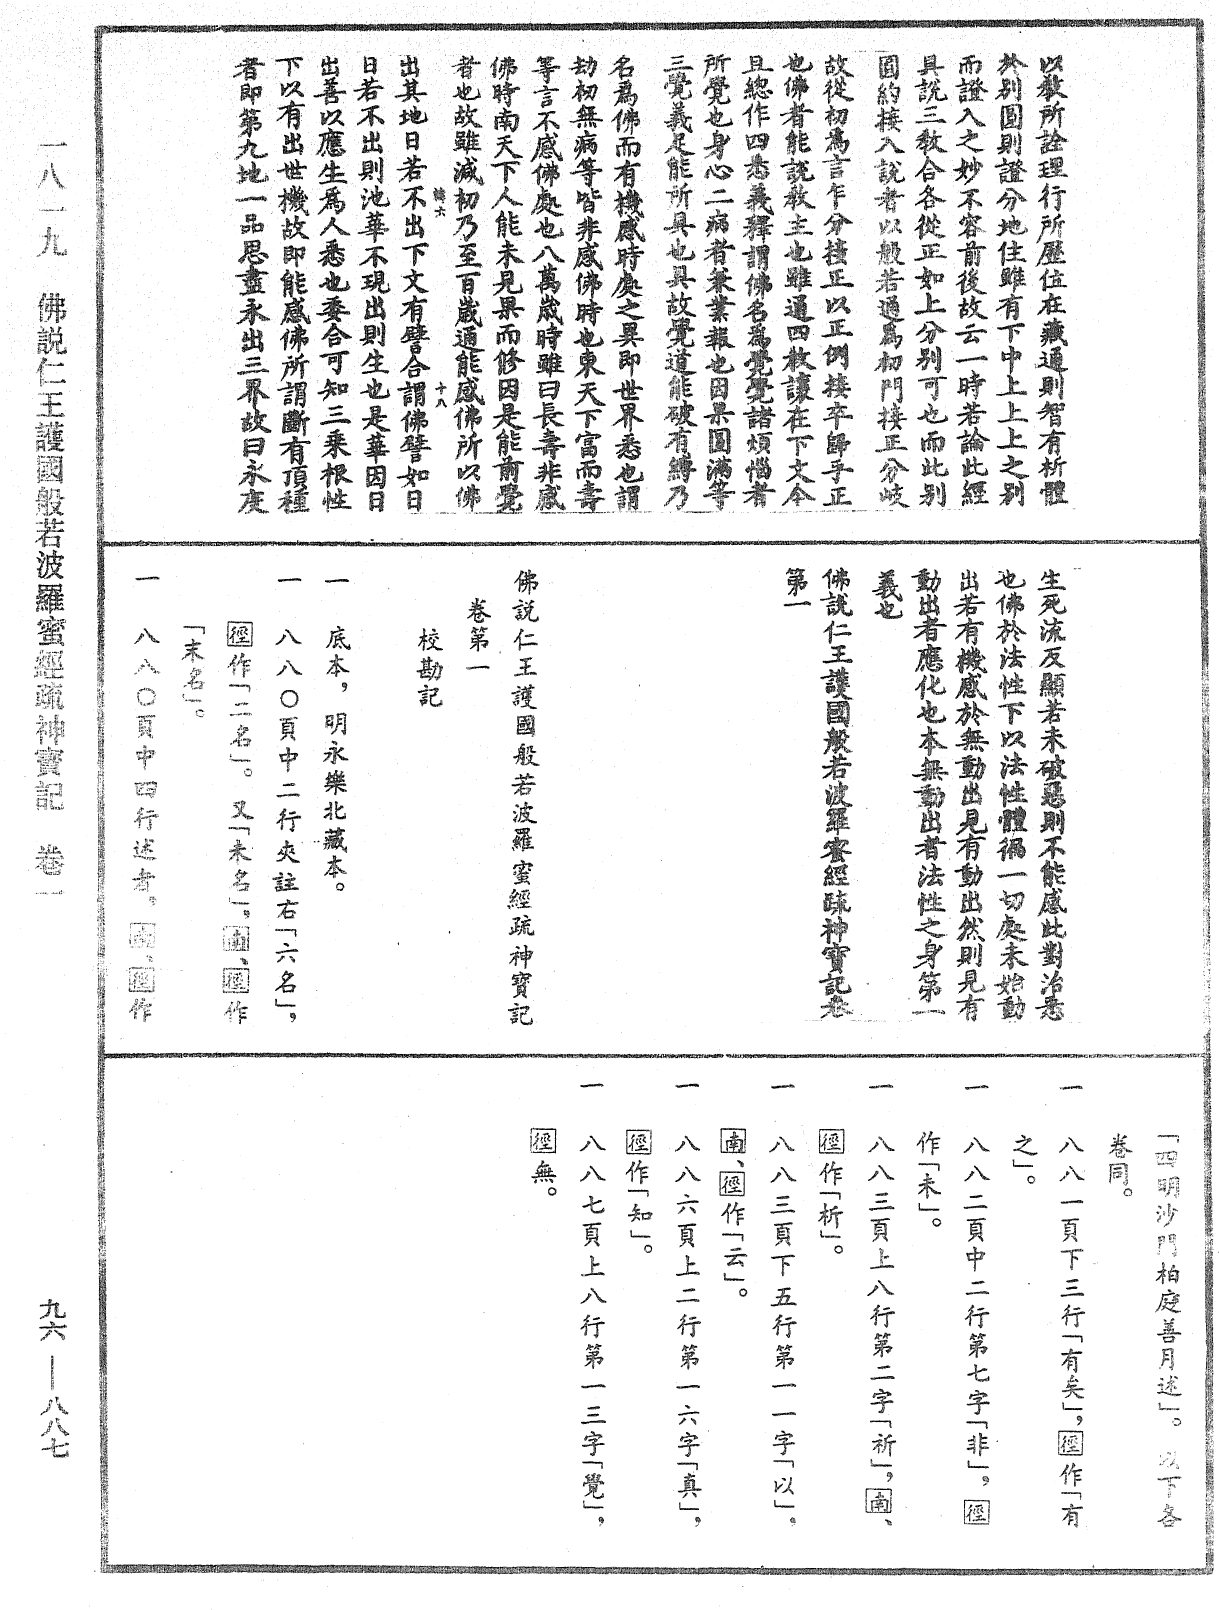 以教所詮理行所歷位在藏通則智有析體
於別圓則證分地住雖有下中上上上之別
而證入之妙不容前後故云一時若論此經
具說三教合各從正如上分別可也而此別
圓約接入說者以般若通為初門接正分岐
故從初為言乍分接正以正例接卒歸乎正
也佛者能說教主也雖通四教讓在下文今
且總作四悉義釋謂佛名為覺覺諸煩惱者
所覺也身心二病者兼業報也因果圓滿等
三覺義足能所具也具故覺道能破有縛乃
名為佛而有機感時處之異即世界悉也謂
劫初無病等皆非感佛時也東天下富而壽
等言不感佛處也八萬歲時雖曰長壽非感
佛時南天下人能未見果而修因是能前覺
者也故雖減初乃至百歲通能感佛所以佛
十八
出其地日若不出下文有譬合謂佛譬如日
日若不出則池華不現出則生也是華因日
出善以應生為人悉也委合可知三乘根性
下以有出世機故即能感佛所謂斷有頂種
者即第九地一品思盡永出三界故曰永度
生死流反顯若未破惡則不能感此對治悉
也佛於法性下以法性體徧一切處未始動
出若有機感於無動出見有動出然則見有
動出者應化也本無動出者法性之身第一
義也
佛說仁王護國般若波羅蜜經疏神寶記卷
第一
佛說仁王護國般若波羅蜜經疏神寶記
卷第一
校勘記
一 底本，明永樂北藏本。
一 八八〇頁中二行夾註右「六名」，
徑作「二名」。又「未名」，南、徑作
「末名」。
一 八八〇頁中四行述者，南、徑作
「四明沙門柏庭善月述」。以下各
卷同。
一 八八一頁下三行「有矣」，徑作「有
之」。
一 八八二頁中二行第七字「非」，徑
作「未」。
一 八八三頁上八行第二字「祈」，南、
徑作「析」。
一 八八三頁下五行第一一字「以」，
南、徑作「云」。
一 八八六頁上二行第一六字「真」，
徑作「知」。
一 八八七頁上八行第一三字「覺」，
徑無。
一八一九 佛說仁王護國般若波羅蜜經疏神寶記 卷一
九六——八八七